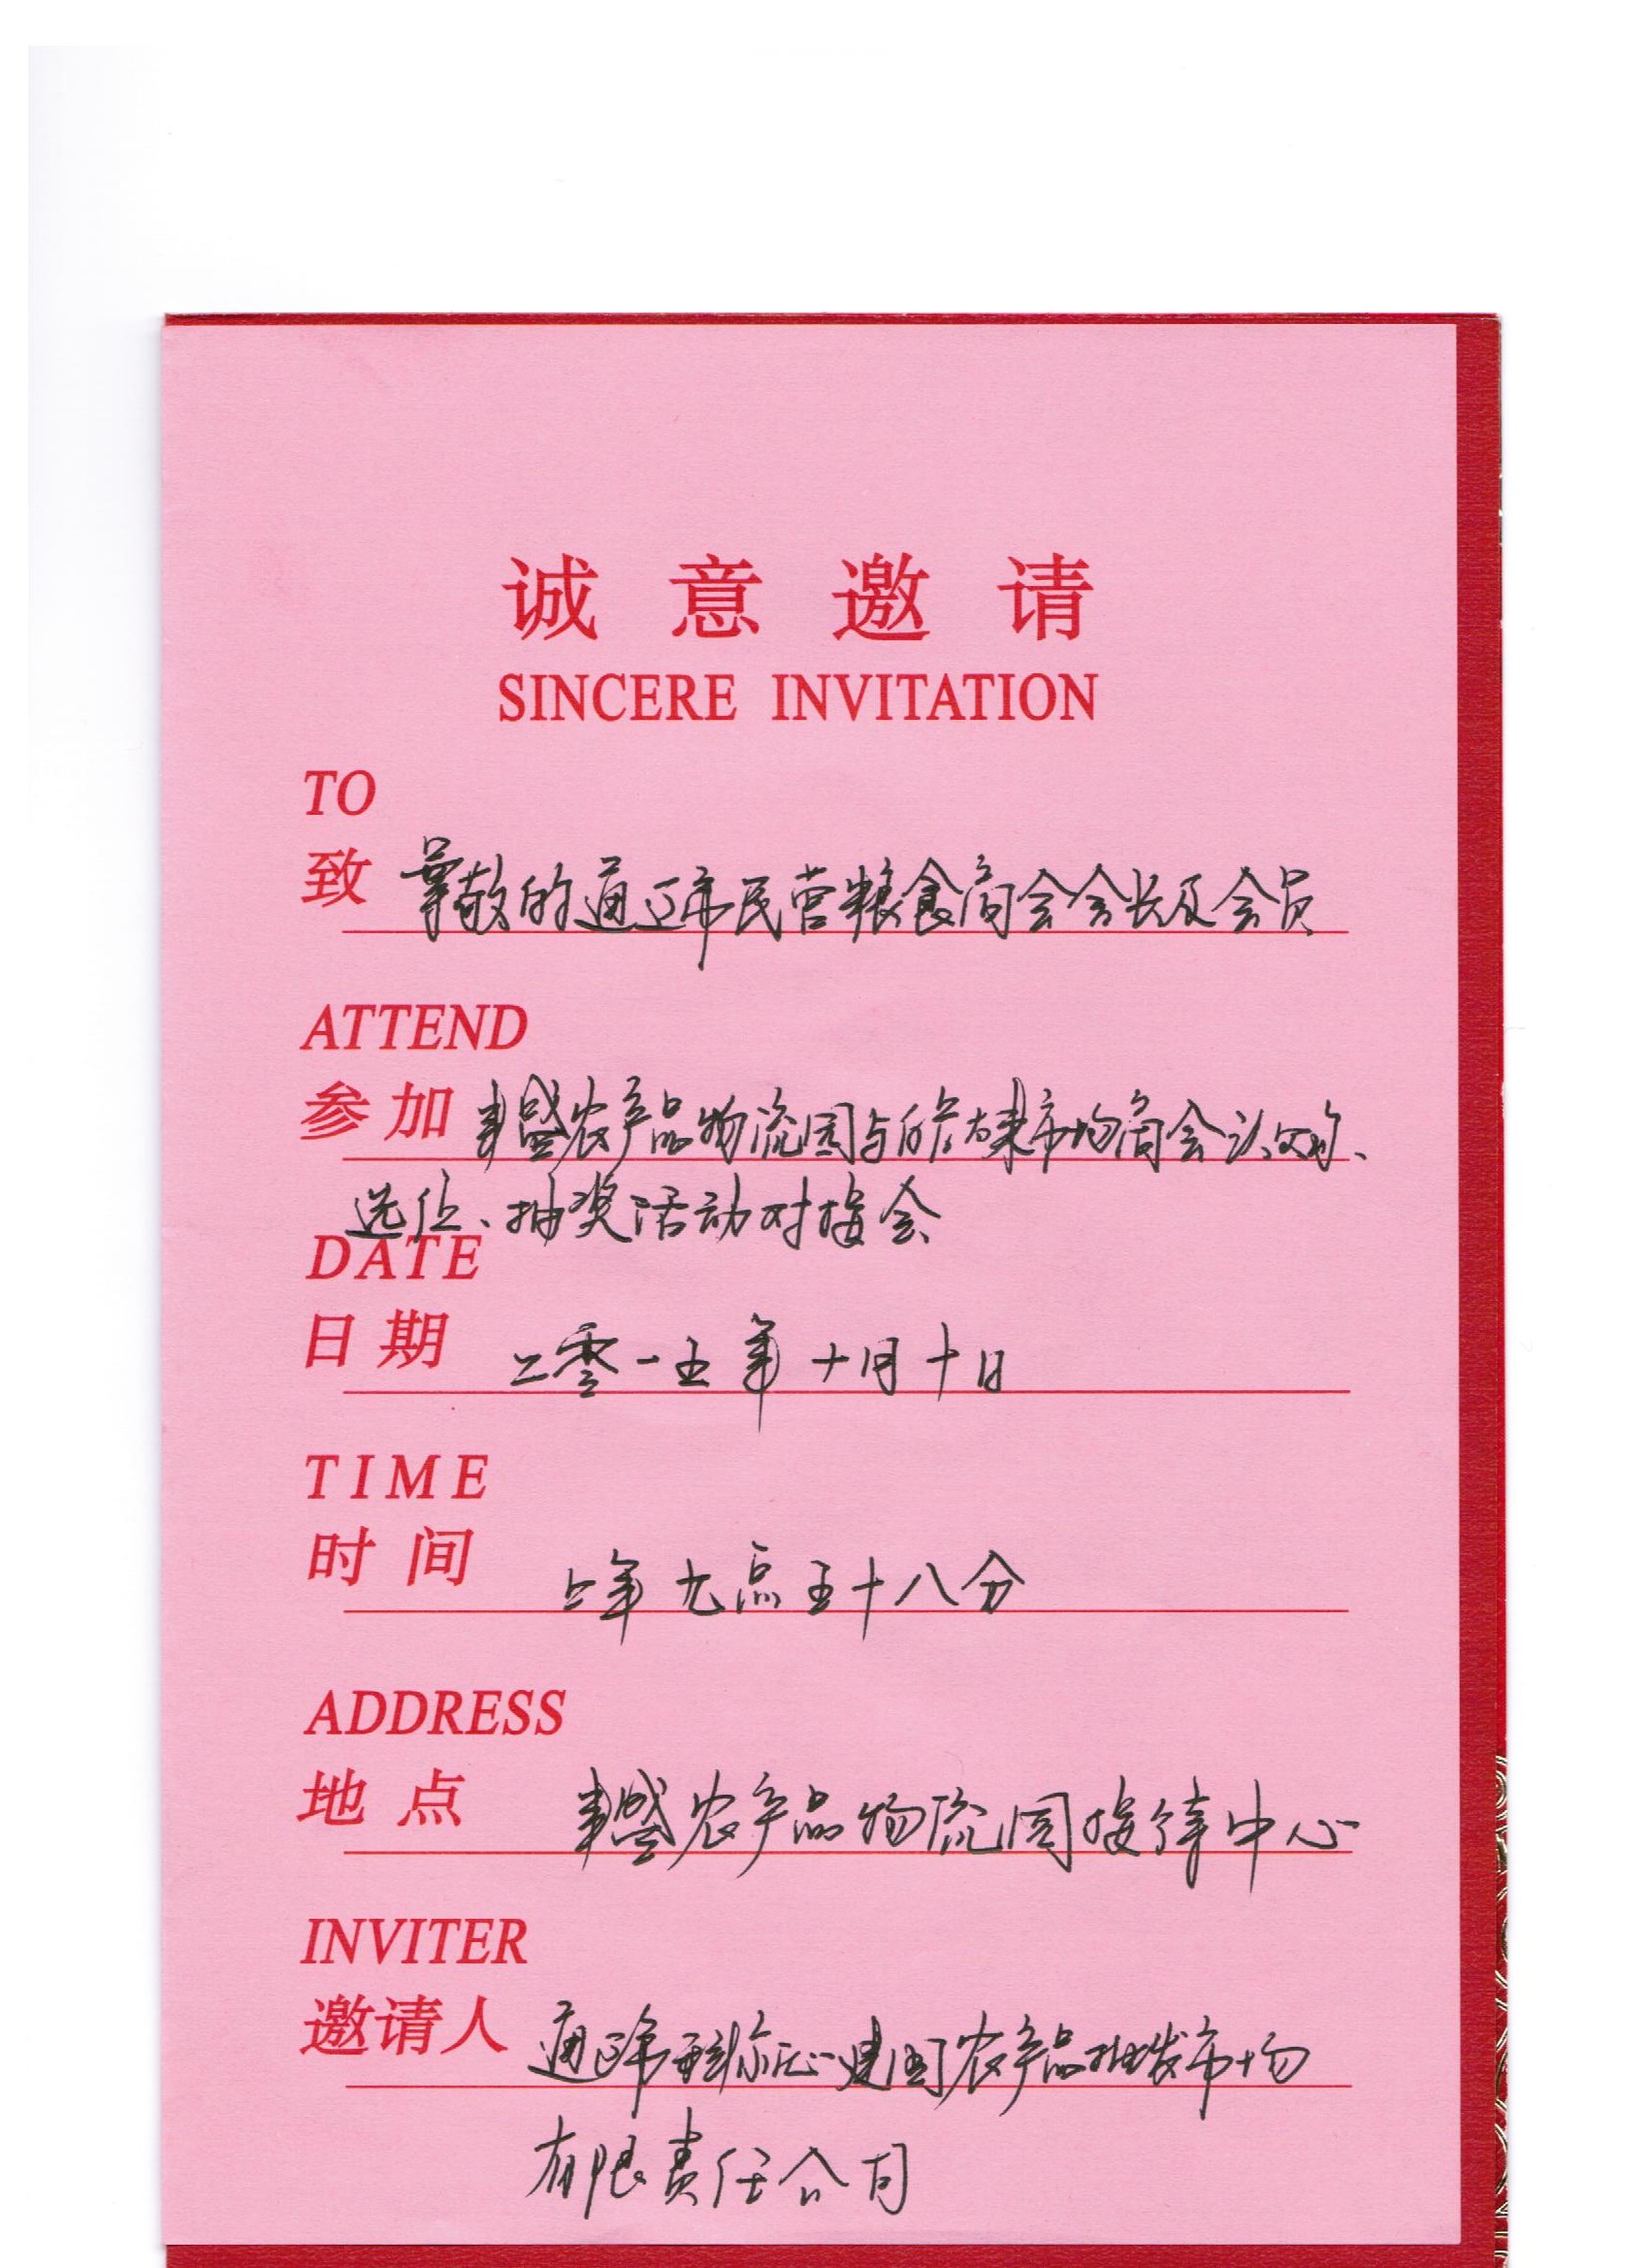 诚意邀请
SINCERE INVITATION
TO
致 尊敬的通辽市民营粮食商会会长及会员
ATTEND
参加 丰盛农产品物流园与 市场商会认
选位、抽奖活动对接会
DATE
日期 二零一五年十月十日
TIME
时间 上午九点五十八分
ADDRESS
地点 丰盛农产品物流园接待中心
INVITER
邀请人 通辽市 建国农产品批发市场
有限责任公司